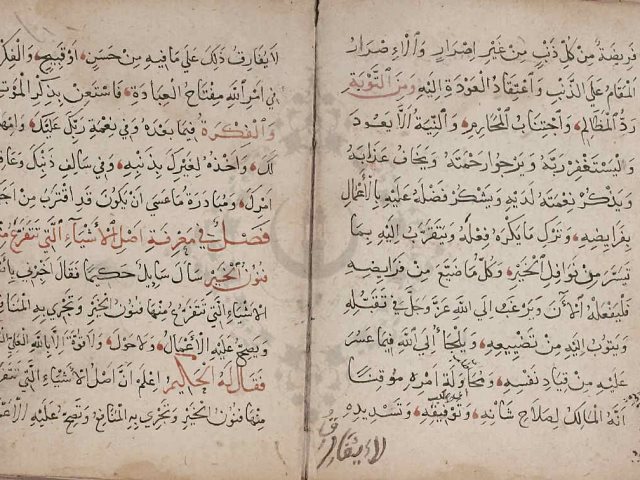 فريضة من كل ذنب من غير إصرار والإصرار
المقام على الذنب واعتقاد العودة إليه ومن التوبة
رد المظالم واجتناب المحارم والنية ألا يعود
وليستغفر ربه ويرجو رحمته ويخاف عذابه
ويذكر نعمته لديه ويشكر فضله عليه بالأعمال
بفرايضه وترك ما يكره فعله ويتقرب إليه بما
تيسر من نوافل الخير وكل ما ضيع من فرايضه
فليفعله الآن ويرغب إلى الله عز وجل في تقبله
ويتوب إليه من تضييعه وليلجأ إلى الله فيما عسر
عليه من قياد نفسه ومحاولة أمره موقنا
أنه المالك لصلاح شانه وتوفيقه وتسديده
لا يفارق
لا يفارق ذلك على ما فيه من حسن أو قبيح والفكر
في أمر الله مفتاح العبادة فاستعن بذكر الموت
والفكرة فيما بعده وفي نعمة ربك عليك
لك وأخذه لغيرك بذنبه وفي سالف ذنبك
أمرك ومبادرة ما عسى أن يكون قد اقترب من
فصل في معرفة أصل الأشياء التي تتفرع
فنون الخير سأل سايل حكيما فقال أخبرني
الأشياء التي تتفرع منها فنون الخير وتجري به
ويصح عليه الأعمال ولا حول ولا قوة إلا بالله
فقال له الحكيم اعلم أن أصل الأشياء التي
منها فنون الخير وتجري به المنافع وتصح عليه